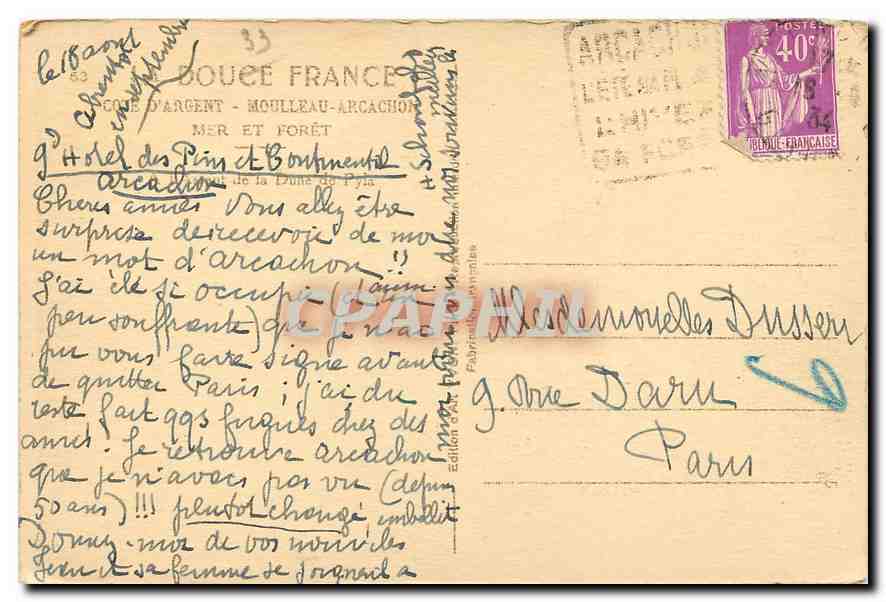 le 18 aout
33
53
DOUCE FRANCE
COTE D'ARGENT - MOULLEAU-ARCACHON
MER ET FORÊT
gd Hotel des Pins et Continental
Arcachon
de la Dune de Pyla
Cheres amies Vous allez être
surprise de recevoir de moi
un mot d'Arcachon !!
J'ai été si occupée (d'ailleurs un
peu souffrante) que je n'ai
pu vous faire signe avant
de quitter Paris ; j'ai du
reste fait qqs fugues chez des
amies ! Je retrouve Arcachon
que je n'avais pas vu (depuis
50 ans) !!! plutot changé, embellit
Donnez-moi de vos nouvelles
Jean et sa femme se joignent a
moi pour
Edition d'Art
Fabrication Française
CPAPHIL
ARCACHON
POSTES
40c
REPUBLIQUE FRANÇAISE
Mesdemoiselles Dussery
9. Rue Daru
Paris
6